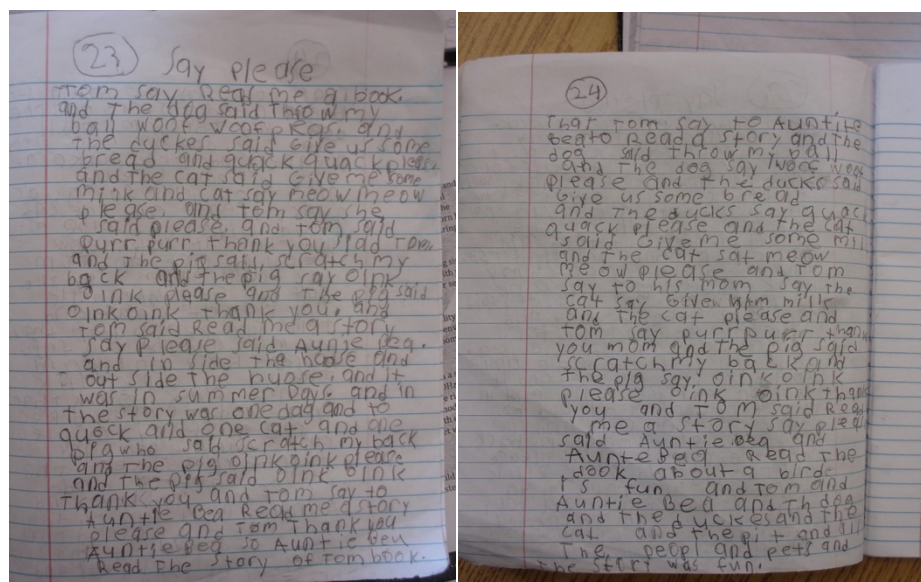 23 Say please
Tom say Read me a book.
and The dog said Throw my
ball woof woof pleas. and
The duckes said Give us some
bread and quack quack please.
and the cat said Give me some
milk and cat say meow meow
please. and Tom say she
said please. and Tom said
Purr purr thank you said Tom.
and The pig said. scratch my
back and the pig say oink
oink please and The pig said
oink oink Thank you. and
Tom said Read me a story
say please said Auntie Bea.
and in side the house and
out side the huose. and it
was in summer Days. and in
The story was one dog and to
quack and one cat and one
pig who said scratch my back
and The pig oink oink please.
and The pig said oink oink
Thank you and Tom say to
Auntie Bea Read me a story
please and Tom Thank you
Auntie Bea so Auntie Beu
Read The Story of Tom book.
24
That Tom say to Auntite
Bea to Read a Story and The
dog said Throw my ball
and The dog say woof woof
please and The ducks said
Give us some bread
and The ducks say quack
quack please and the cat
said Give me some mil
and The cat sat meow
meow please and Tom
say to his mom say the
cat say Give him milk
and The cat please and
Tom say purr purr thank
you mom and the pig said
scratch my back and
the pig say. oink oink
please oink oink thank
you and Tom said Read
me a story say pleas
said Auntie Bea and
Auntie Bea Read The
dook about a bird.
it's fun and Tom and
Auntie Bea and Th dog
and The duckes and the
cat and the pit and all
The peopl and pets and
The story was fun.